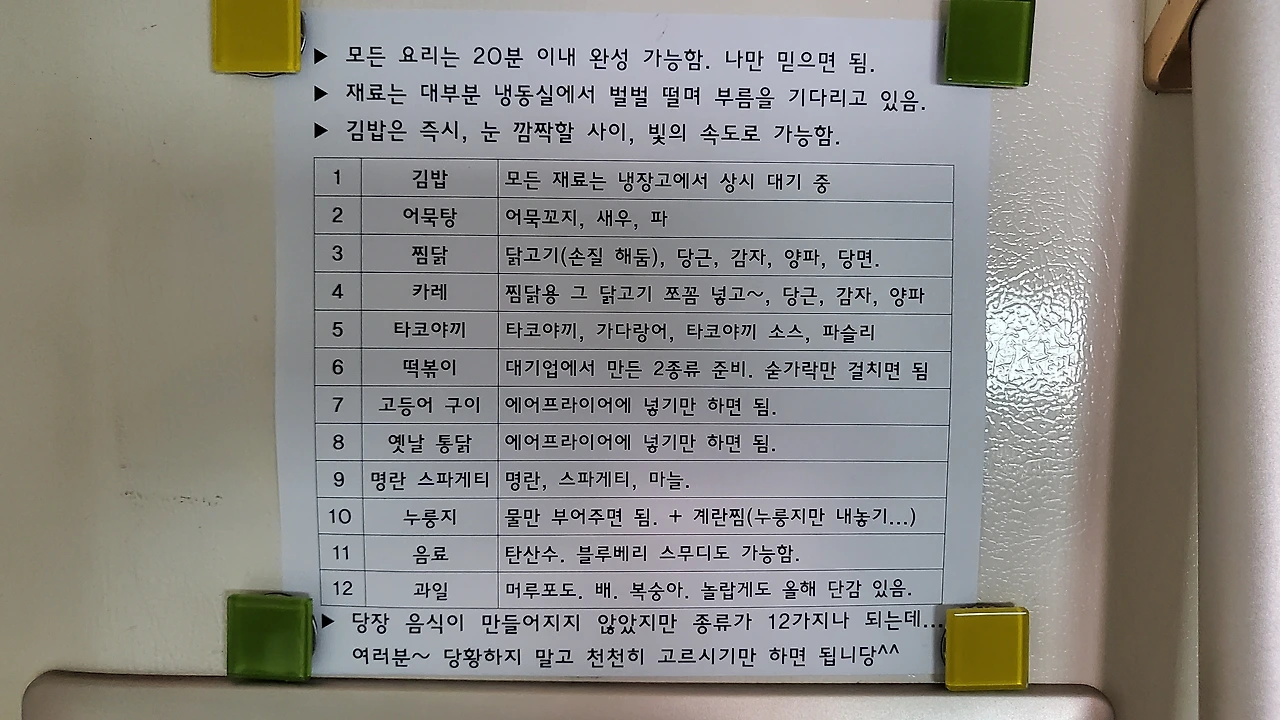 ▶ 모든 요리는 20분 이내 완성 가능함. 나만 믿으면 됨.
▶ 재료는 대부분 냉동실에서 벌벌 떨며 부름을 기다리고 있음.
▶ 김밥은 즉시, 눈 깜짝할 사이, 빛의 속도로 가능함.
1 김밥 모든 재료는 냉장고에서 상시 대기 중
2 어묵탕 어묵꼬지, 새우, 파
3 찜닭 닭고기(손질 해둠), 당근, 감자, 양파, 당면.
4 카레 찜닭용 그 닭고기 쪼꼼 넣고~, 당근, 감자, 양파
5 타코야끼 타코야끼, 가다랑어, 타코야끼 소스, 파슬리
6 떡볶이 대기업에서 만든 2종류 준비. 숟가락만 걸치면 됨
7 고등어 구이 에어프라이어에 넣기만 하면 됨.
8 옛날 통닭 에어프라이어에 넣기만 하면 됨.
9 명란 스파게티 명란, 스파게티, 마늘.
10 누룽지 물만 부어주면 됨. + 계란찜(누룽지만 내놓기...)
11 음료 탄산수. 블루베리 스무디도 가능함.
12 과일 머루포도. 배. 복숭아. 놀랍게도 올해 단감 있음.
▶ 당장 음식이 만들어지지 않았지만 종류가 12가지나 되는데...
여러분~ 당황하지 말고 천천히 고르시기만 하면 됩니당^^